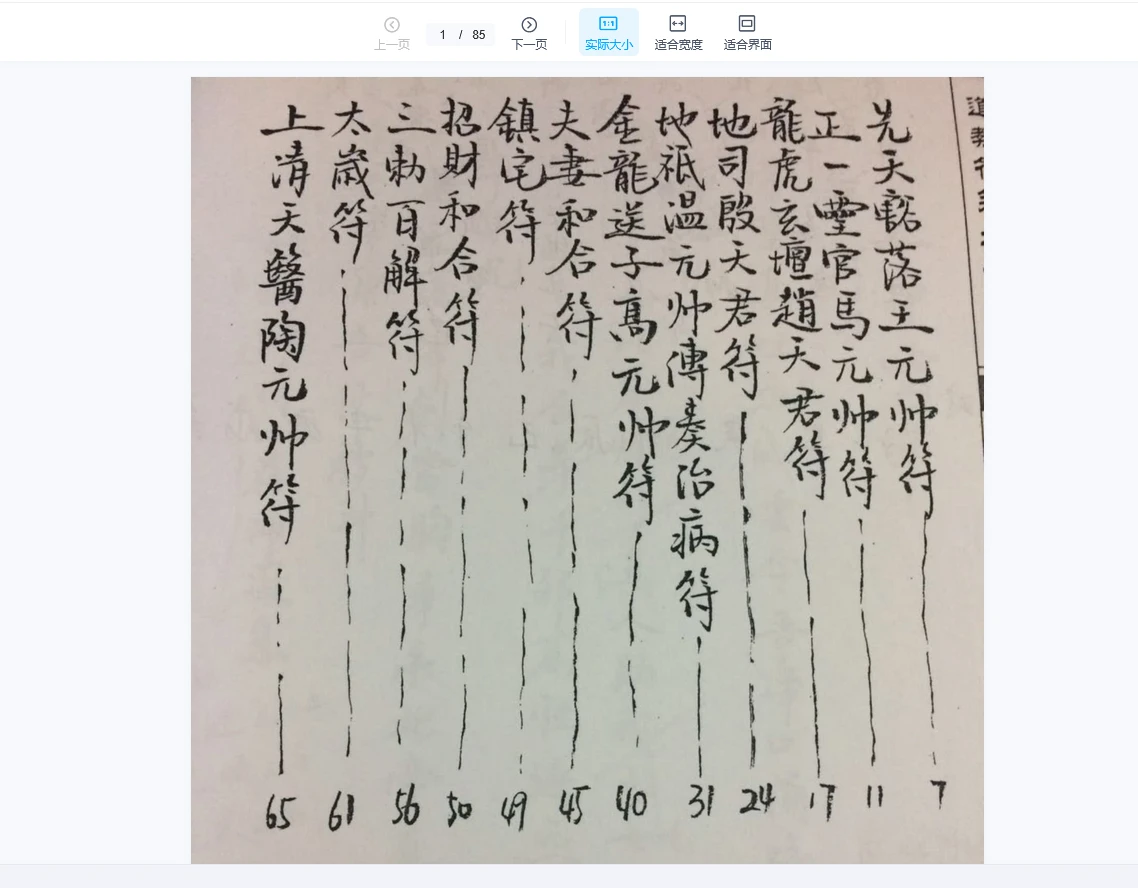 上一页
1 / 85
下一页
1:1
实际大小
适合宽度
适合界面
道教符
先天豁落王元帅符 7
正一靈官馬元帅符 11
龍虎玄壇趙天君符 17
地司殷天君符 24
地祇温元帅傳奏治病符 31
金龍送子高元帅符 40
夫妻和合符 45
鎮宅符 49
招財和合符 50
三勑百解符 56
太歲符 61
上清天醫陶元帅符 65